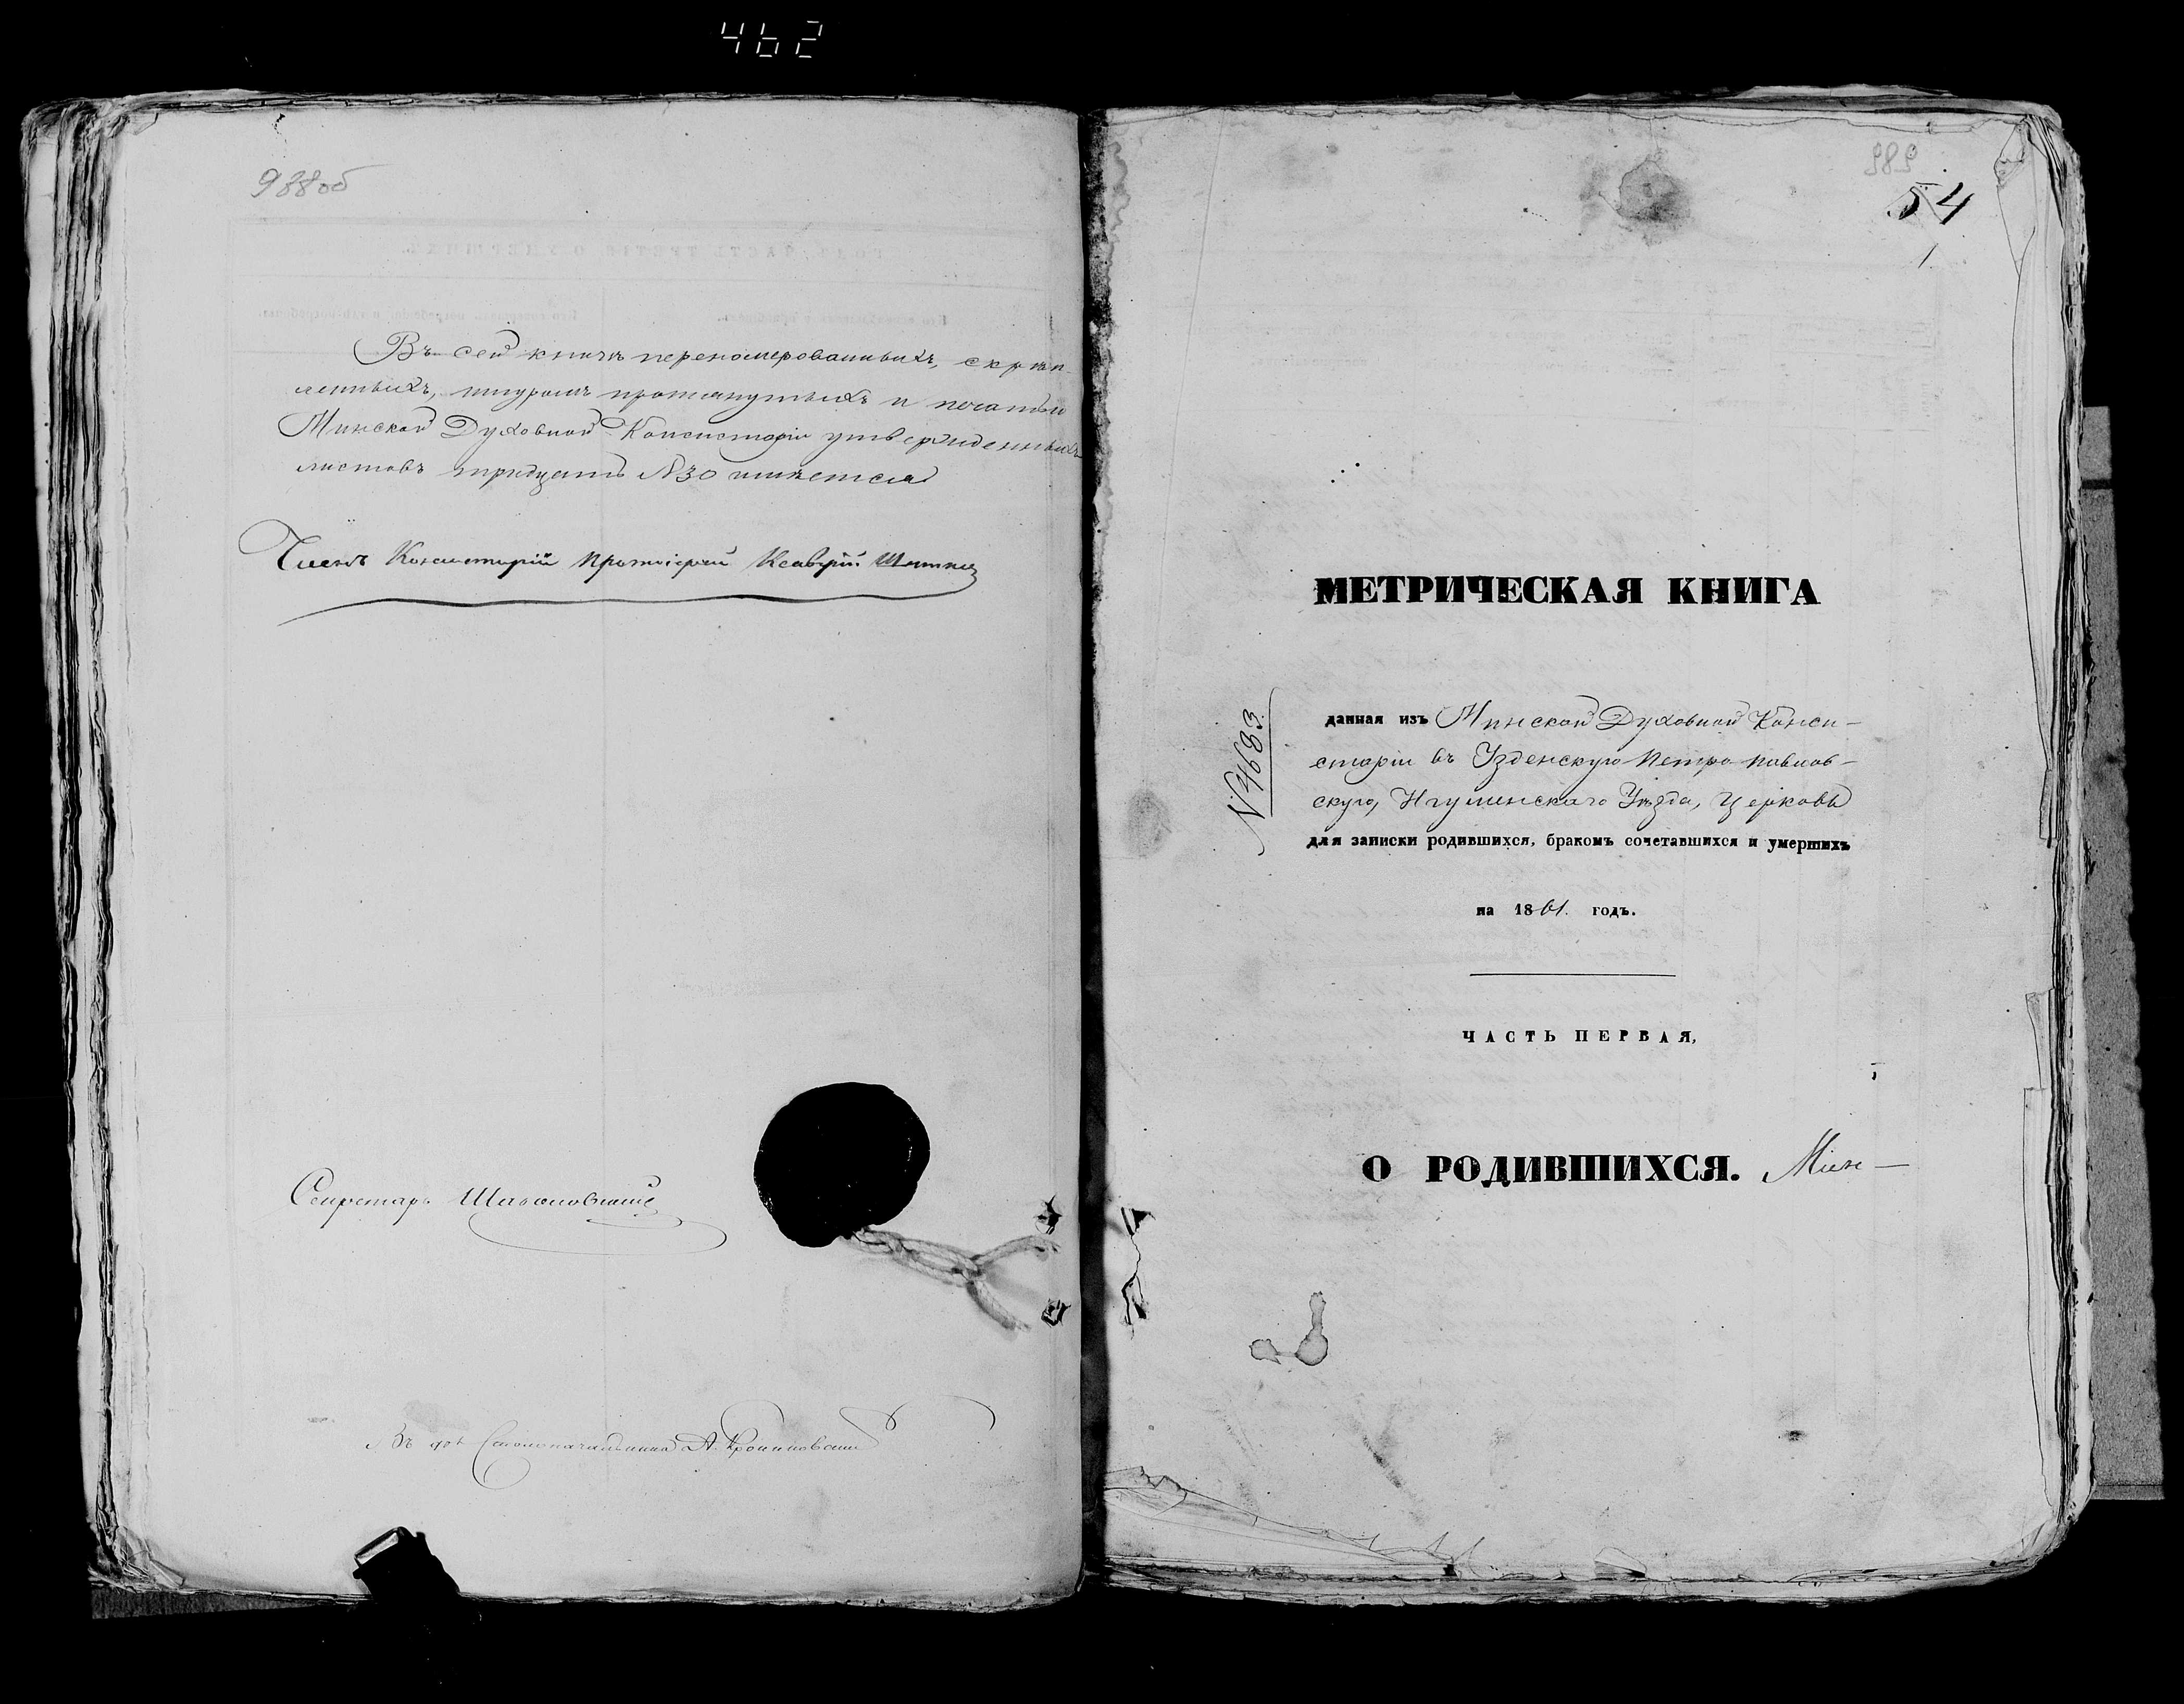 462
988об
Въ сей книгѣ переномерованныхъ, скрѣп-
ленныхъ, шнуромъ протянутыхъ и печатью
Минской Духовной Консисторіи утвержденныхъ
листовъ тридцать №30 имѣется
Членъ Консисторіи Протоіерей
Секретарь
Столоначальника А.
989
54
1
МЕТРИЧЕСКАЯ КНИГА
№4683
данная изъ Минской Духовной Конси-
сторіи въ Узденскую Петро-Павлов-
скую, Игуменскаго Уѣзда, Церковь
для записки родившихся, бракомъ сочетавшихся и умершихъ
на 1861. годъ.
ЧАСТЬ ПЕРВАЯ,
О РОДИВШИХСЯ.